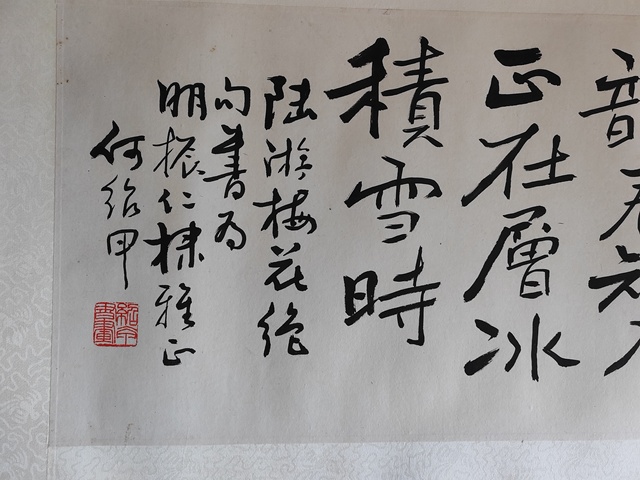 正在層冰
積雪時
陸游梅花絕
句書為
明振仁棣雅正
何紹甲